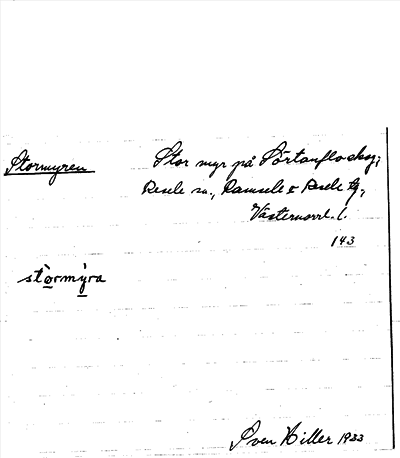 Stormyren
Stor myr på Sörtanflo skog,
Resele sn., Ramsele o Resele tg,
Västernorrl. l.
143
stòrmỳra
Sven Hiller 1933